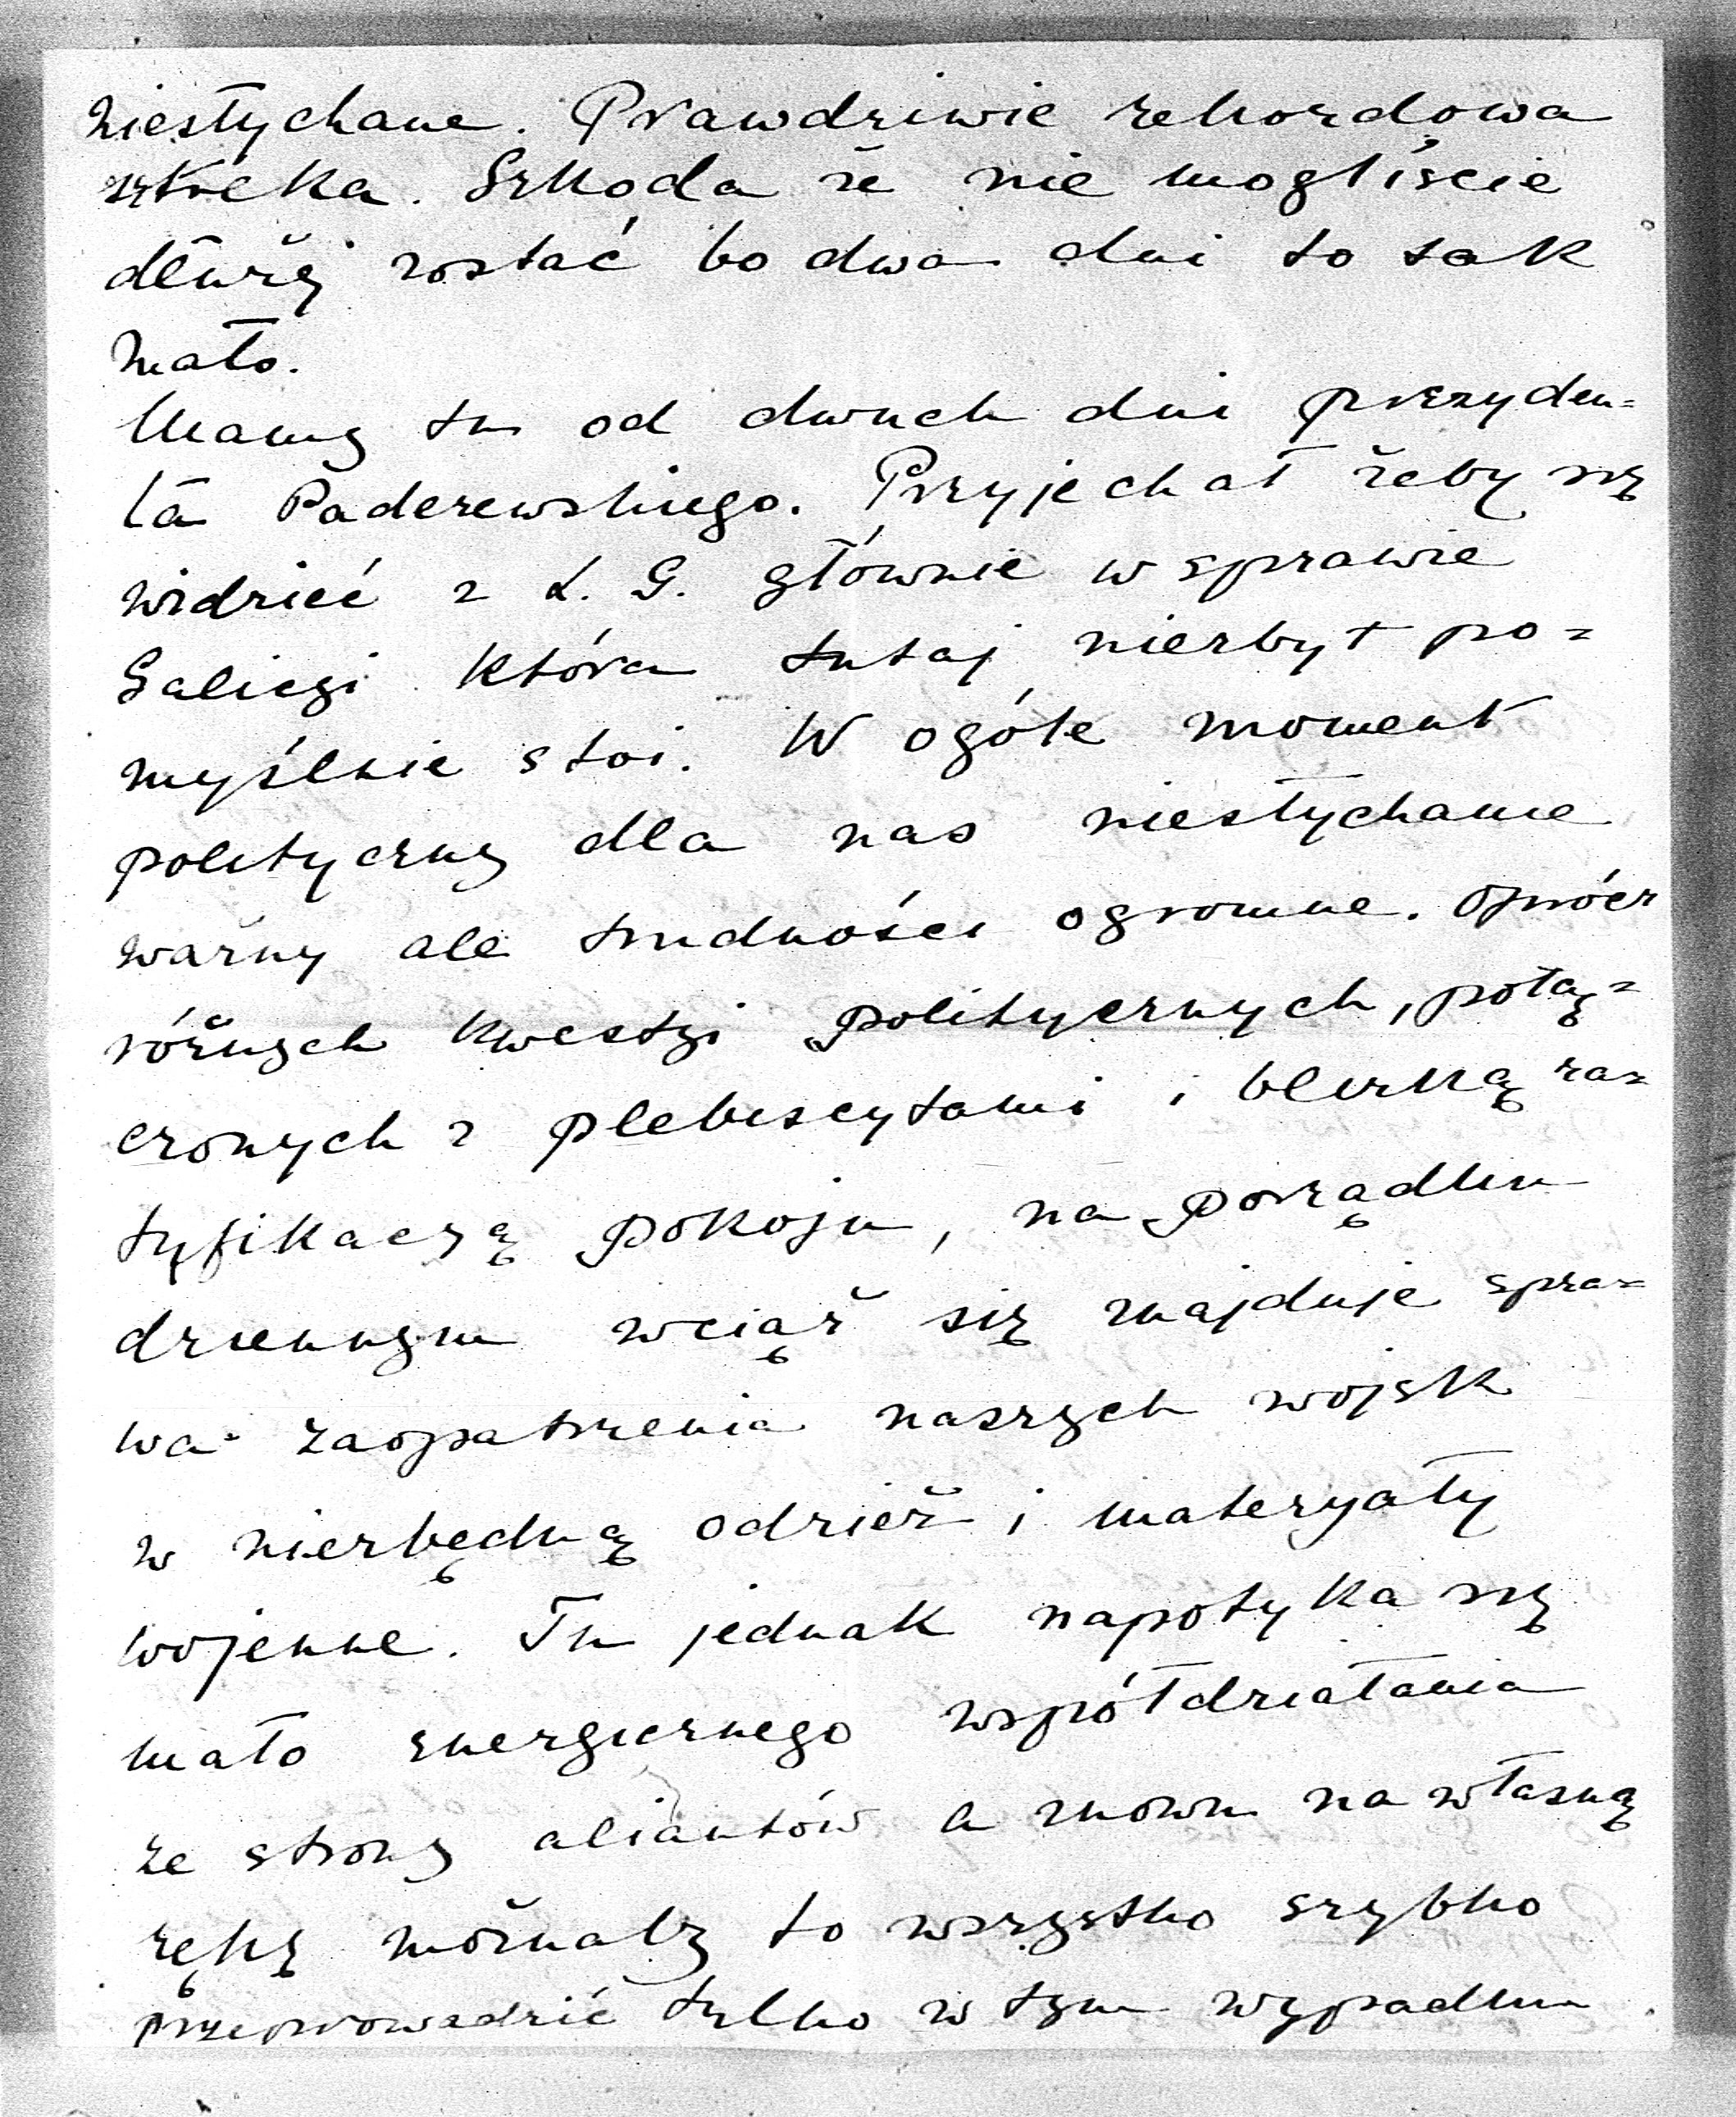 niesłychane. Prawdziwie rekordowa
sztuka. Szkoda że nie mogliście
dłużej zostać bo dwa dni to tak
mało.
Mamy tu od dwuch dni prezyden=
ta Paderewskiego. Przyjechał żeby się
widzieć z L. G. głównie w sprawie
Galicyi która tutaj niezbyt po=
myślnie stoi. W ogóle moment
polityczny dla nas niesłychanie
ważny ale trudności ogromne. Oprócz
różnych kwestyi politycznych, połą=
czonych z plebiscytami i blizką ra=
tyfikacyą pokoju, na porządku
dziennym wciąż się znajduje spra=
wa zaopatrzenia naszych wojsk
w niezbędną odzież i materyały
wojenne. Tu jednak napotyka się
mało energicznego współdziałania
ze strony aliantów a znowu na własną
rękę możnaby to wszystko szybko
przeprowadzić tylko w tym wypadku